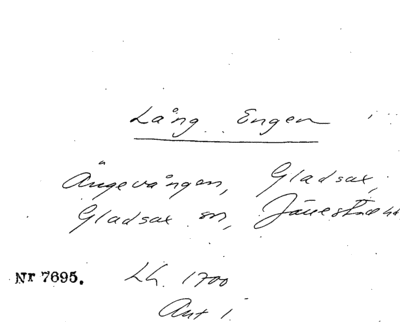 Lång Engen
Ängevången, Gladsax,
Gladsax sn, Järrestads hd
Nr 7695. Lh. 1700
Ant 1